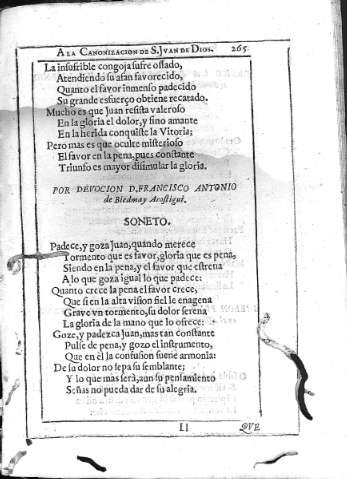 A LA CANONIZACION DE S. IVAN DE DIOS. 265
La insufrible congoja sufre osado,
Atendiendo su afan favorecido,
Quanto el favor inmenso padecido
Su grande esfuerço obtiene recatado.
Mucho es que Juan resista valeroso
En la gloria el dolor, y fino amante
En la herida conquiste la Vitoria;
Pero mas es que oculte misterioso
El favor en la pena, pues constante
Triunfo es mayor disimular la gloria.
POR DEVOCION D. FRANCISCO ANTONIO
de Biedmay Arostigui.
SONETO.
Padece, y goza Juan, quando merece
Tormento que es favor, gloria que es pena,
Siendo en la pena, y el favor que estrena
A lo que goza igual lo que padece:
Quanto crece la pena el favor crece,
Que si en la alta vision fiel le enagena
Grave vn tormento, su dolor serena
La gloria de la mano que lo ofrece:
Goze, y padezca Juan, mas tan constante
Pulse de pena, y gozo el instrumento,
Que en él la confusion suene armonia:
De su dolor no sepa su semblante;
Y lo que mas será, aun su pensamiento
Señas no pueda dar de su alegria.
Ll QVE